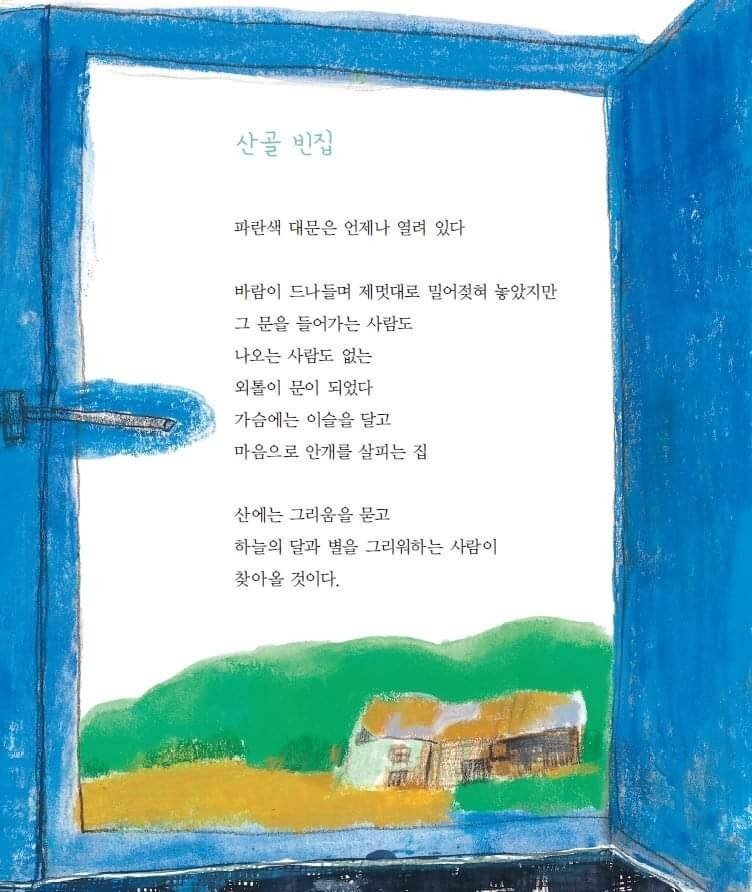 산골 빈집
파란색 대문은 언제나 열려 있다
바람이 드나들며 제멋대로 밀어젖혀 놓았지만
그 문을 들어가는 사람도
나오는 사람도 없는
외톨이 문이 되었다
가슴에는 이슬을 달고
마음으로 안개를 살피는 집
산에는 그리움을 묻고
하늘의 달과 별을 그리워하는 사람이
찾아올 것이다.